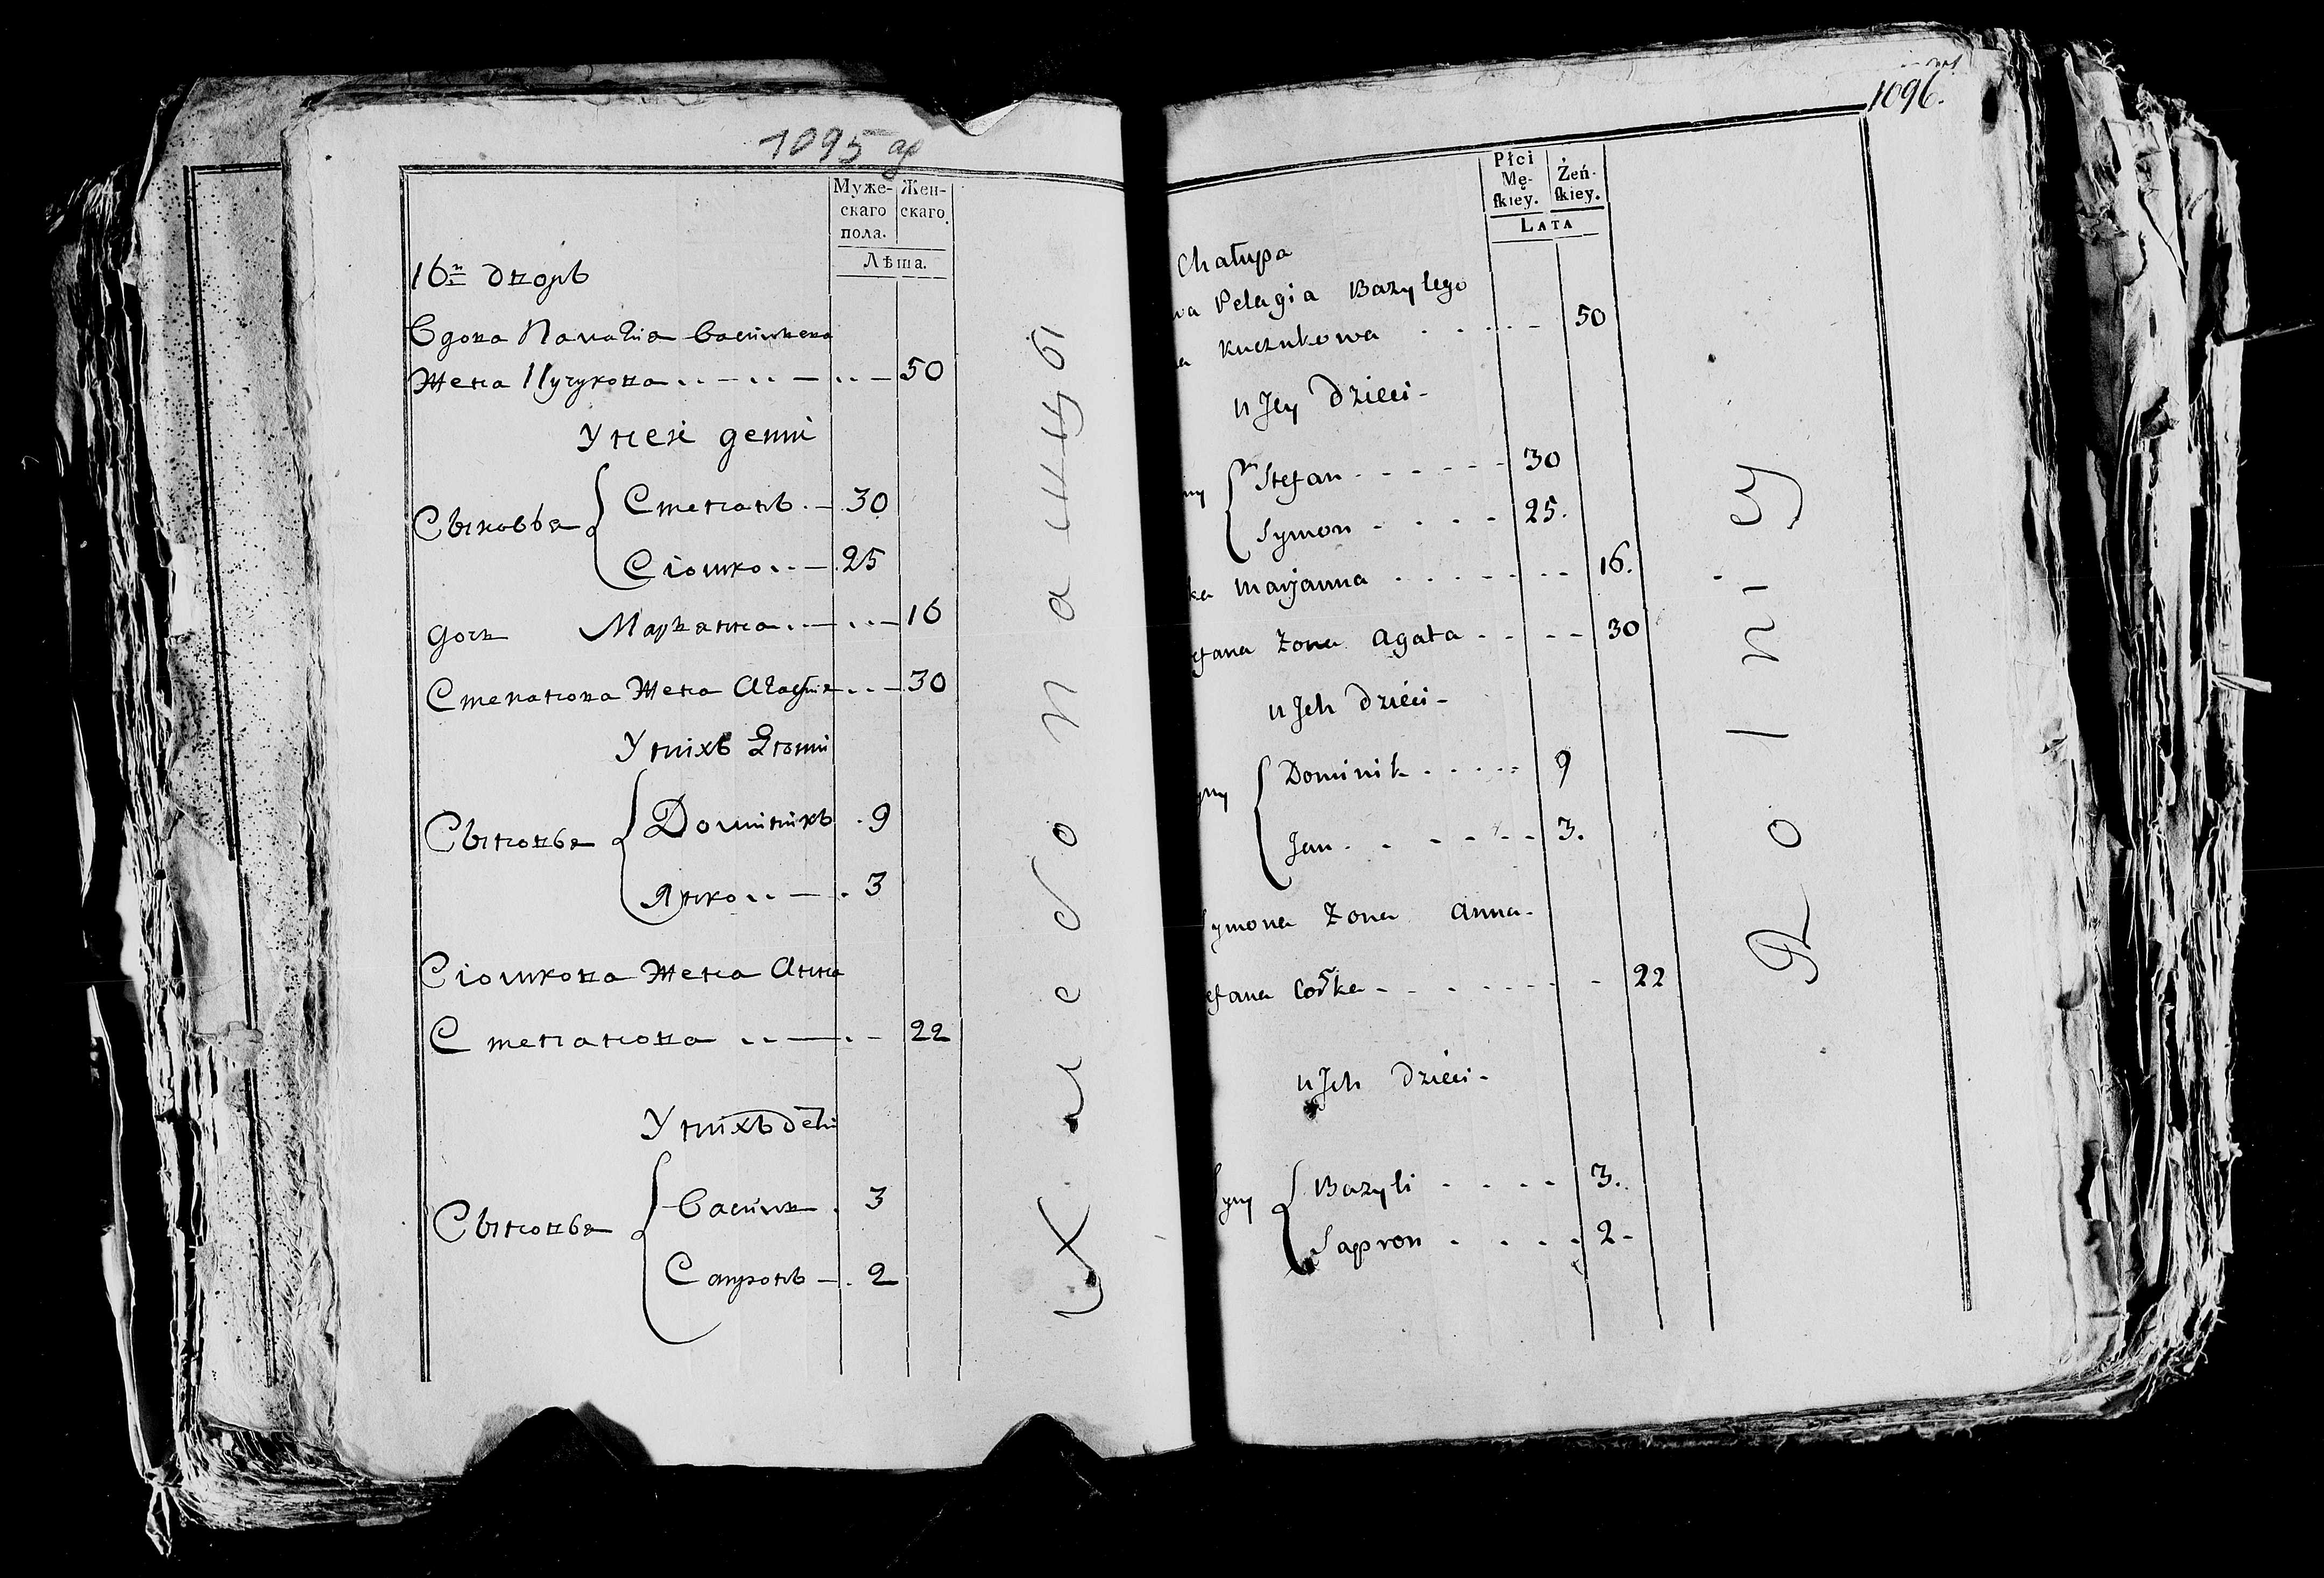 1095 об
Муже-
скаго
пола.
Жен-
скаго.
Лѣта.
16й дворъ
Вдова Палагия Васильева
жена Кучукова 50
У неи дети
Сыновья Степанъ 30
Сіомко 25
дочь Марьянна 16
Степанова жена Агафия 30
У нихъ дѣти
Сыновья Доминикъ 9
Янко 3
Сіомкова жена Анна
Степанова 22
У нихъ дети
Сыновья Василь 3
Сапронъ 2
Хлебопашцы
1096.
Płci
Mę-
skiey.
Żeń-
skiey.
LATA
Chałupa
wa Pelagia Bazylego
a Kuczukowa 50
u Jey Dzieci
ny Stefan 30
Symon 25.
ka Maryanna 16.
efana Żona Agata 30
u Jch Dzieci
yny Dominik 9
Jan 3.
ymona Żona Anna
efana Córka 22
u Jch Dzieci
Syny Bazyli 3.
Sapron 2
Rolnicy